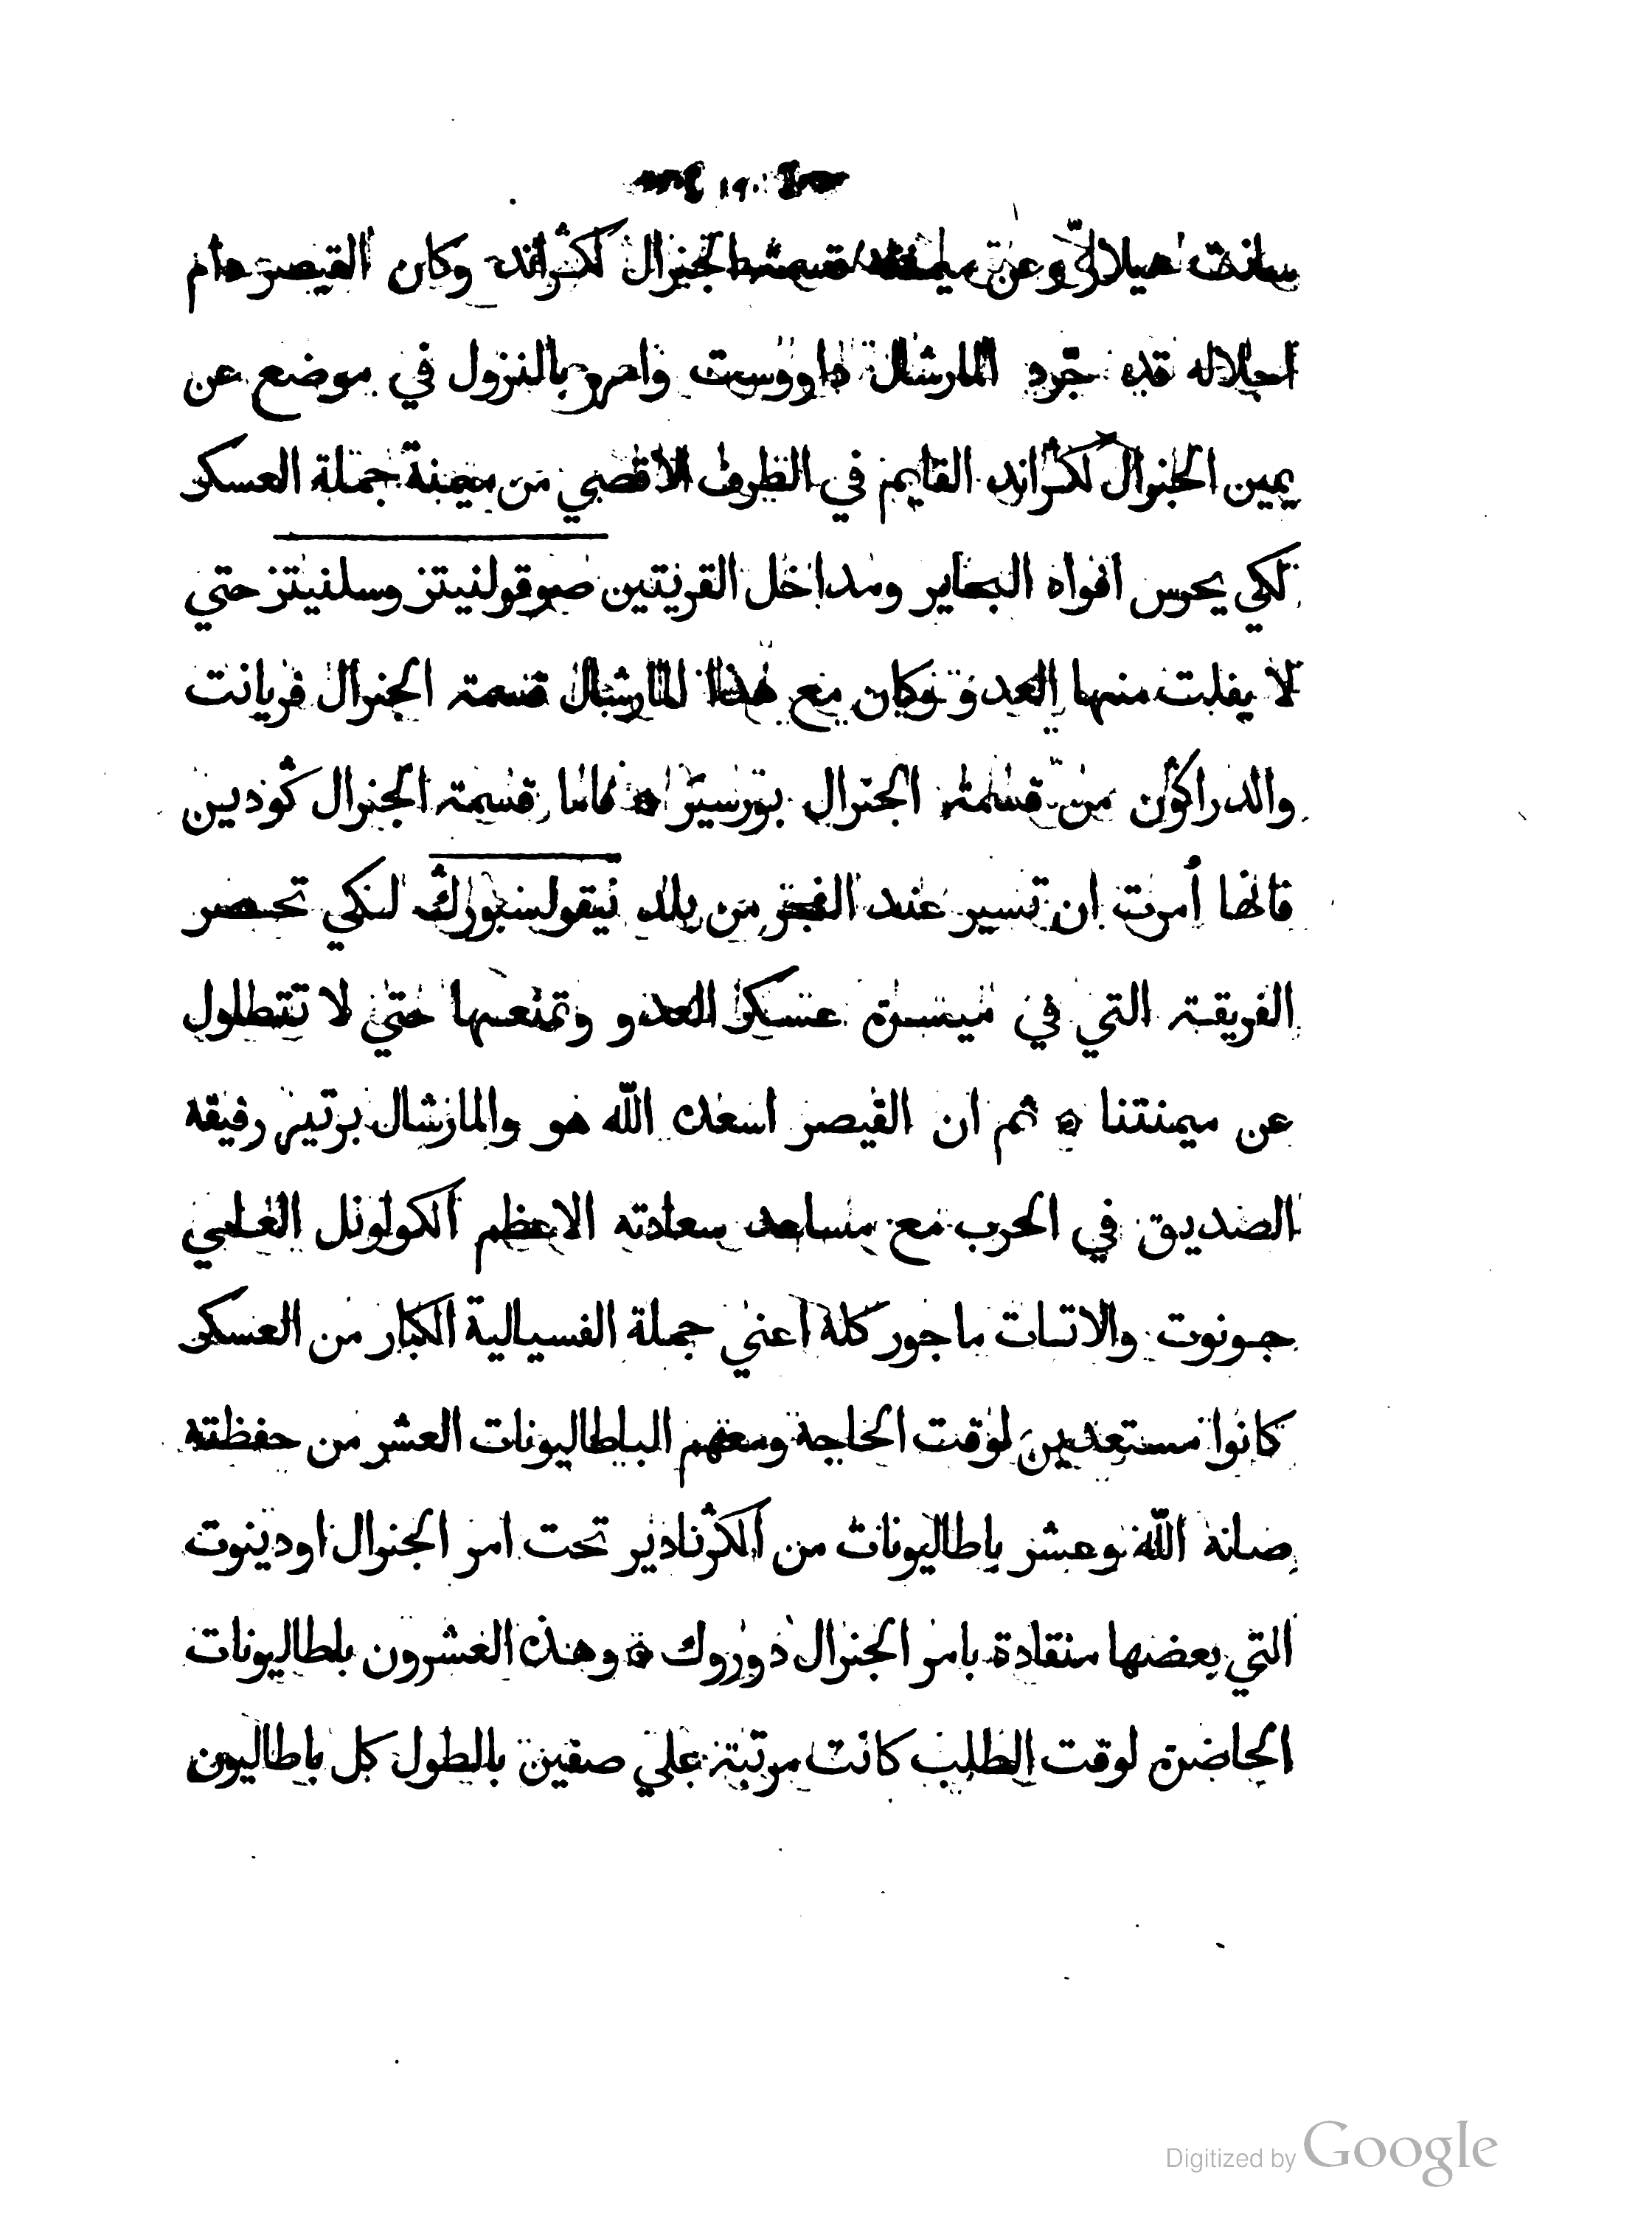 ١٩٠
سانت هيلاري وعن ميمنته قسمة الجنرال لكڭراند وكان القيصر دام
اجلاله قد جرّد المارشال داووست وامره بالنزول في موضع عن
يمين الجنرال لكڭراند القايم في الطرف الاقصي من ميمنة جملة العسكر
لكي يحرس افواه البحاير ومداخل القريتين صوقولنيتز وسلنيتز حتي
لا يفلت منها العدو وكان مع هذا المارشال قسمة الجنرال فريانت
والدراڭون من قسمة الجنرال بورسير ۞ فاما قسمة الجنرال ڭودين
فانها أمرت ان تسير عند الفجر من بلد نيقولسبورڭ لكي تحصر
الفريقة التي في ميسرة عسكر العدو وتمنعها حتي لا تتطلول
عن ميمنتنا ۞ ثم ان القيصر اسعده الله هو والمارشال برتير رفيقه
الصديق في الحرب مع مساعد سعادته الاعظم الكولونل العلمي
جونوت والاتات ماجور كلة اعني جملة الفسيالية الكبار من العسكر
كانوا مستعدين لوقت الحاجة ومعهم الباطاليونات العشر من حفظته
صانه الله وعشر باطاليونات من الكڭرنادير تحت امر الجنرال اودينوت
التي بعضها منقادة بامر الجنرال دوروك ۞ وهذه العشرون بلطاليونات
الحاضرة لوقت الطلب كانت مرتبة علي صفين بالطول كل باطاليون
Digitized by Google